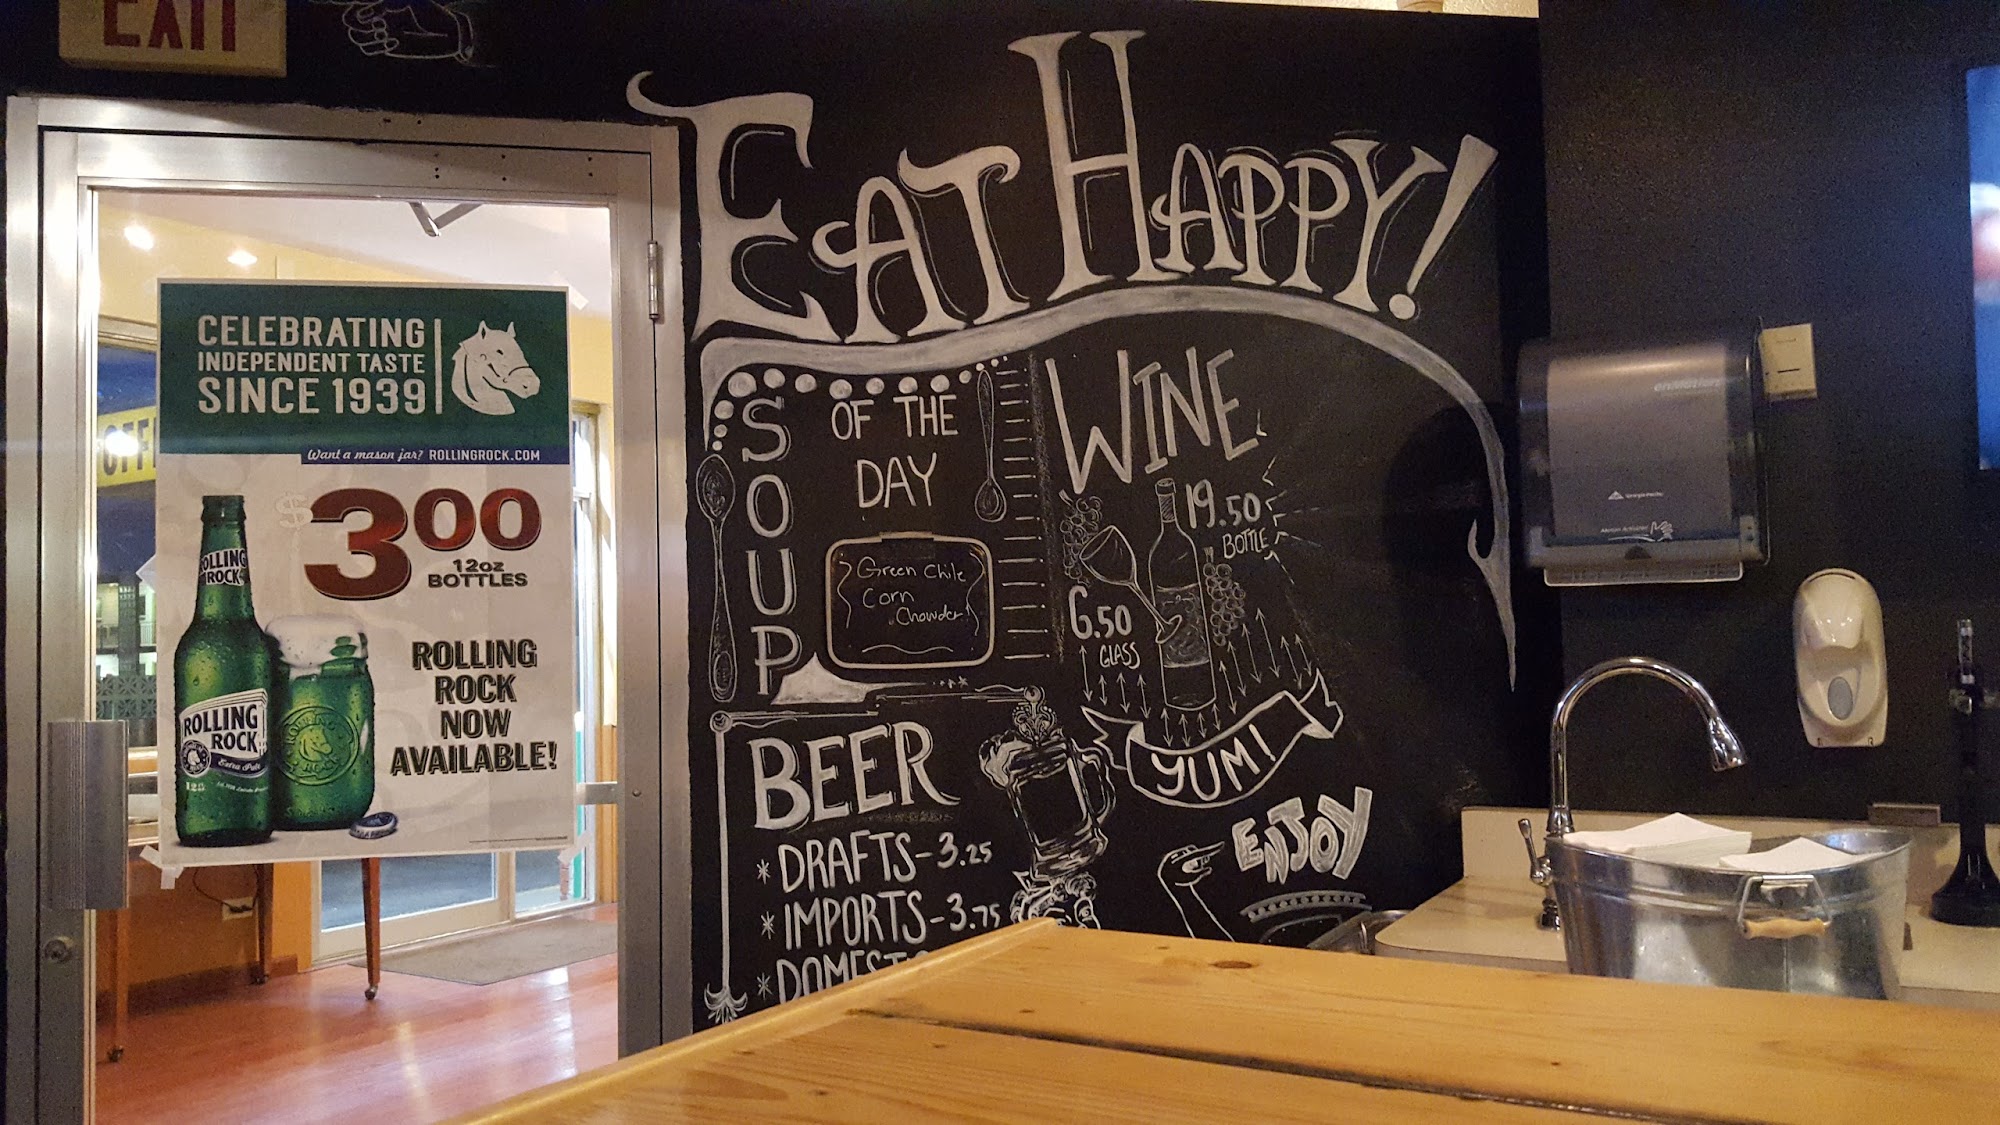 EXIT
CELEBRATING
INDEPENDENT TASTE
SINCE 1939
Want a mason jar? ROLLINGROCK.COM
$3.00
12oz
BOTTLES
ROLLING
ROCK
NOW
AVAILABLE!
ROLLING
ROCK
ROLLING
ROCK
Extra Pale
EAT HAPPY!
SOUP
OF THE
DAY
Green Chile
Corn
Chowder
WINE
19.50
BOTTLE
6.50
GLASS
YUM!
BEER
* DRAFTS-3.25
* IMPORTS-3.75
ENJOY
enMotion
Georgia-Pacific